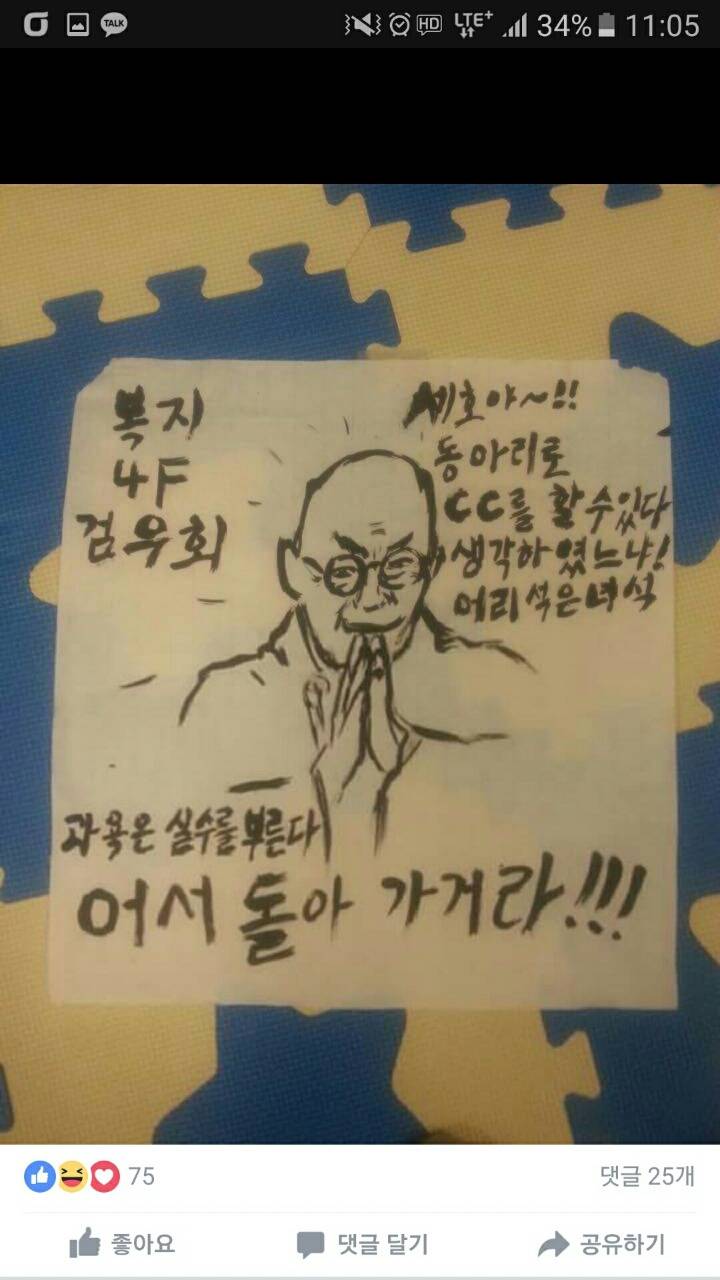 TALK
HD LTE+ 34% 11:05
복지
4F
검우회
세호야~!!
동아리로
CC를 할 수 있다
생각하였느냐!
어리석은 녀석
과욕은 실수를 부른다
어서 돌아 가거라!!!
75 댓글 25개
좋아요 댓글 달기 공유하기